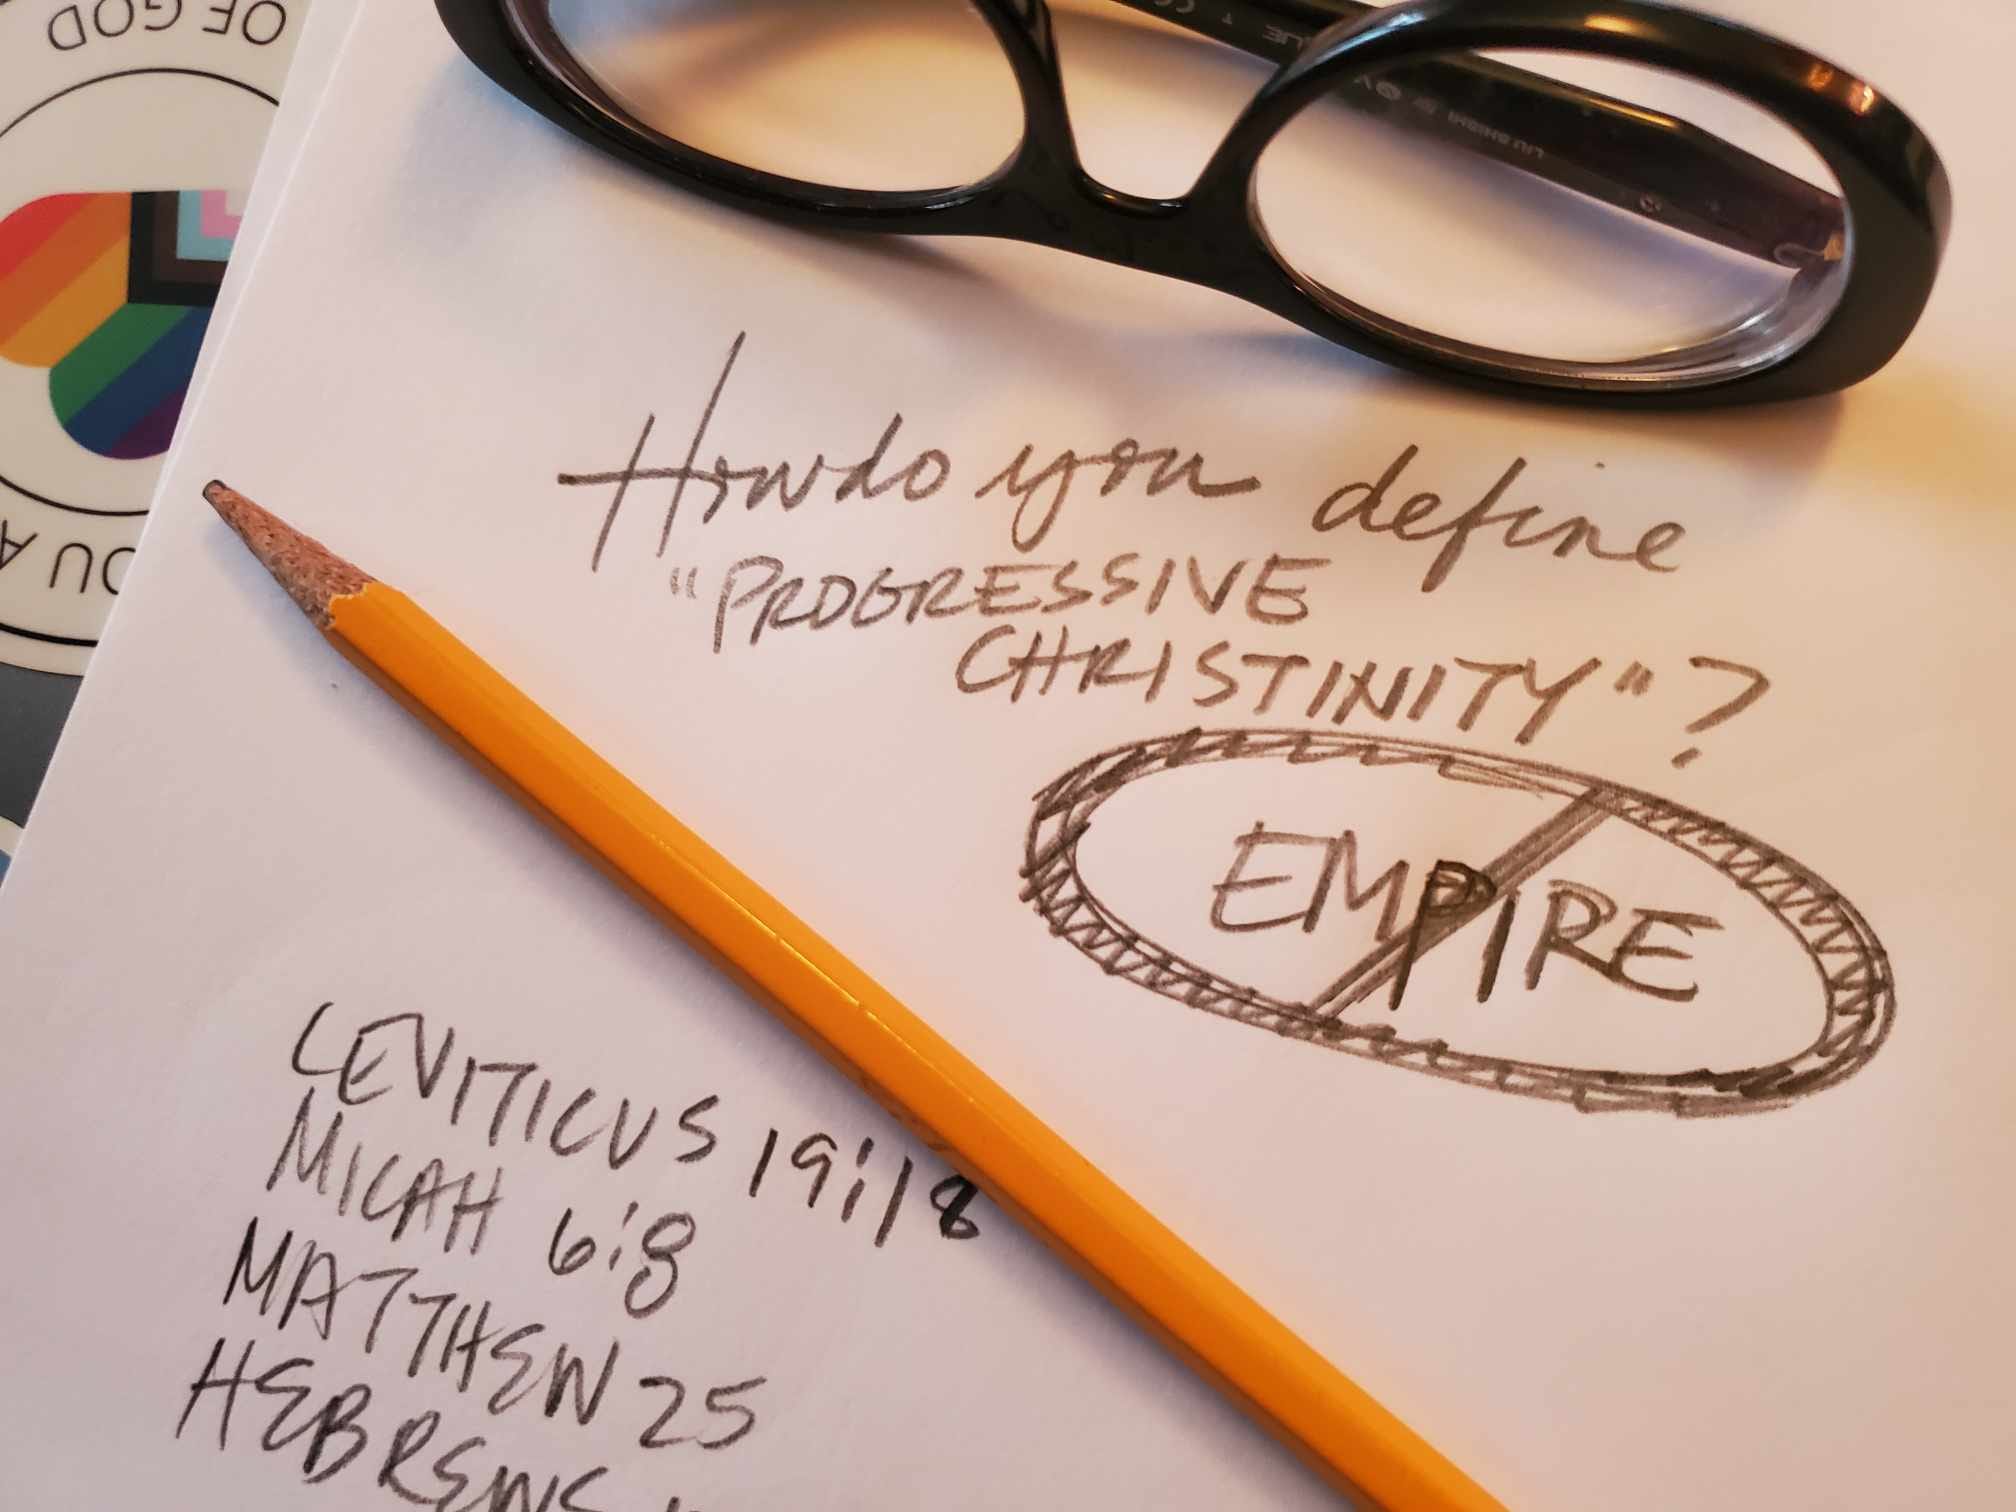 OF GOD
How do you define
"PROGRESSIVE
CHRISTINITY"?
EMPIRE
LEVITICUS 19:18
MICAH 6:8
MATTHEW 25
HEBREWS
LIU SHISHI